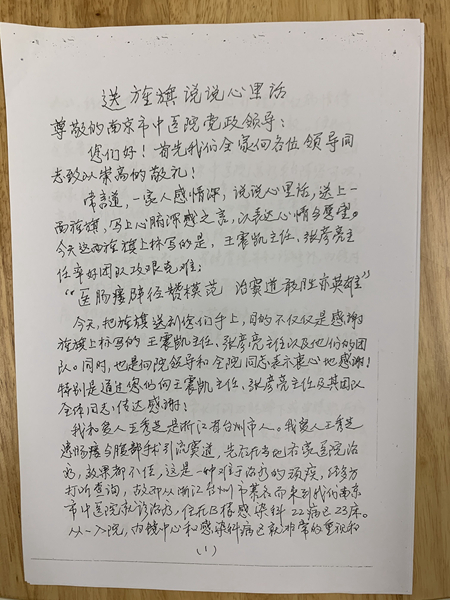 送旌旗说说心里话
尊敬的南京市中医院党政领导：
您们好！首先我们全家向各位领导同
志致以崇高的敬礼！
常言道，一家人感情深，说说心里话，送上一
面旌旗，写上心腑深感之言，以表达心情与愿望。
今天这面旌旗上标写的是，王震凯主任、张彦亮主
任率好团队攻艰克难；
“医肠瘘陆径赞模范 治窦道敢胜亦英雄”
今天，把旌旗送到您们手上，目的不仅仅是感谢
旌旗上标写的王震凯主任、张彦亮主任以及他们的团
队。同时，也是向院领导和全院同志表示衷心地感谢！
特别是通过您们向王震凯主任、张彦亮主任及其团队
全体同志传达感谢！
我和家人王秀芝是浙江省台州市人。我家人王秀芝
患肠瘘与腹部手术引流窦道，先在本省其他名家医院治
疗，效果都不佳，这是一种难于治疗的顽疾，经多方
打听查询，故即从浙江台州市慕名而来到我们南京
市中医院就诊治疗，住在B楼感染科22病区23床。
从一入院，内镜中心和感染科病区就非常的重视和
（1）